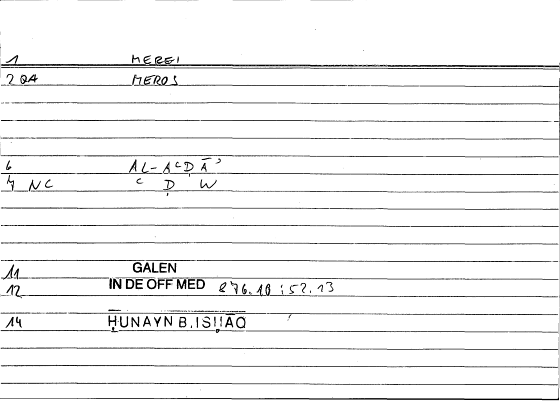 1 MEREI
2 QA MEROS
6 AL-AʿḌĀʾ
7 NC ʿ Ḍ W
11 GALEN
12 IN DE OFF MED 876.10 ; 52.13
14 ḤUNAYN B. ISḤĀQ